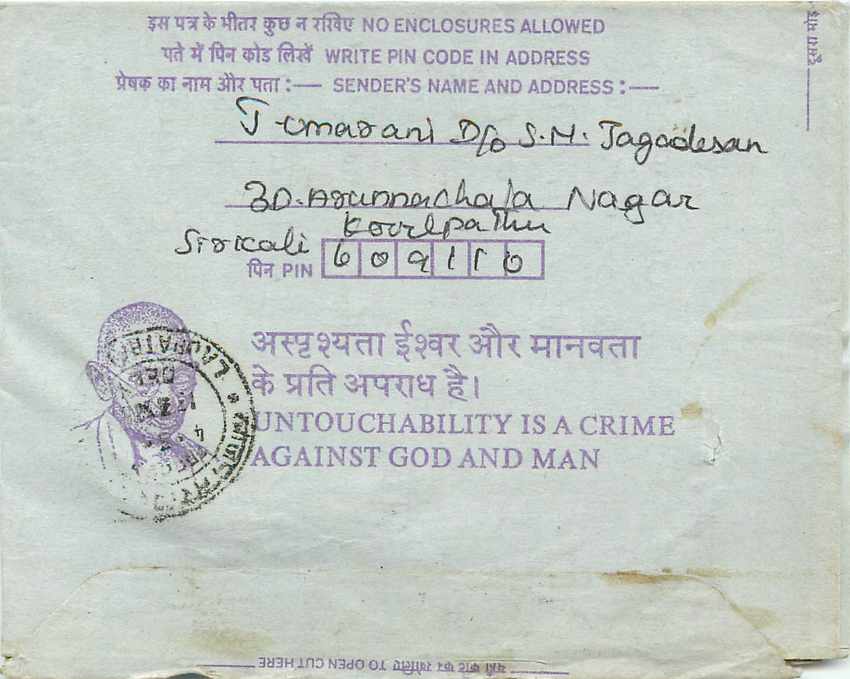 इस पत्र के भीतर कुछ न रखिए NO ENCLOSURES ALLOWED
पते में पिन कोड लिखें WRITE PIN CODE IN ADDRESS
प्रेषक का नाम और पता :— SENDER'S NAME AND ADDRESS :—
J umarani D/o S.M. Jagadesan
3D. Arunnachala Nagar
Sirkali
पिन PIN 609110
अस्पृश्यता ईश्वर और मानवता
के प्रति अपराध है।
UNTOUCHABILITY IS A CRIME
AGAINST GOD AND MAN
यहाँ काट कर खोलिए TO OPEN CUT HERE
दूसरा मोड़